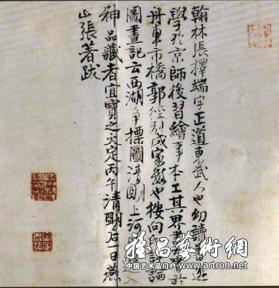 翰林張擇端字正道東武人也幼讀書遊
學於京師後習繪事本工其界畫於
舟車市橋郭徑別成家數也按向論
圖畫記云西湖爭標圖清明上河入
神品藏者宜寶之大定丙午清明後一日燕
山張著跋
雅昌藝術網